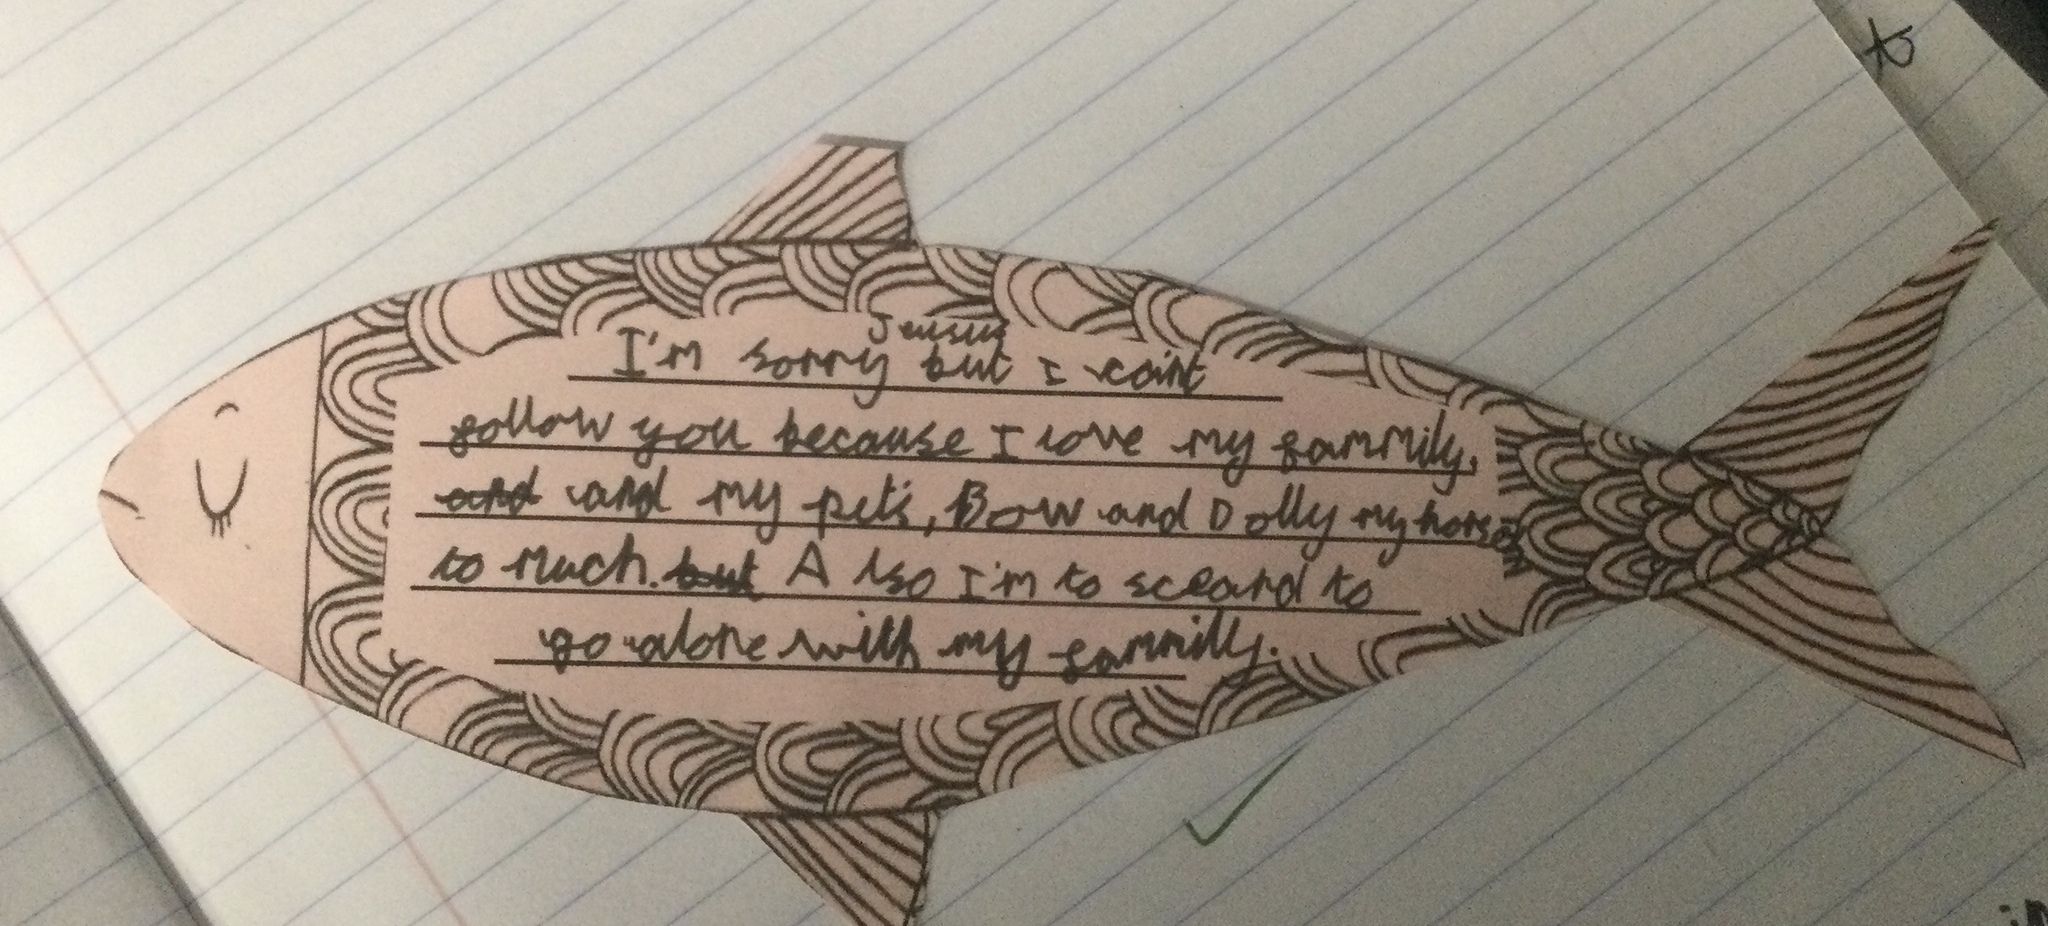 Jensus
I'm sorry but I cain't
follow you because I love my fammily,
and and my pets, Bow and Dolly my horse
to much. but Also I'm to sceard to
go alone with my fammilly.